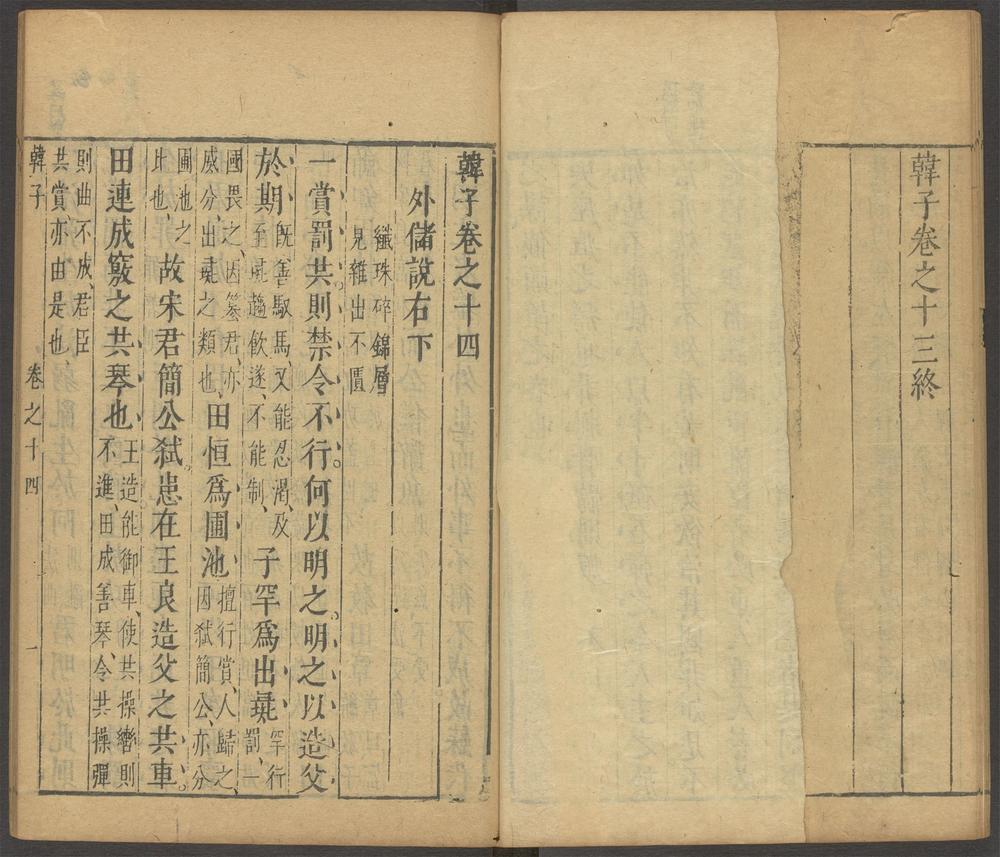 韓子卷之十三終
韓子卷之十四
外儲說右下
纖珠碎錦層
見雜出不匱
一賞罰共則禁令不行何以明之明之以造父
於期旣善馭馬又能忍渴及至彘趨飲遂不能制子罕爲出彘罕行罰一
國畏之因簒君亦威分出彘之類也田恒爲圃池擅行賞人歸之因弑簡公亦分
圃池之比也故宋君簡公弑患在王良造父之共車
田連成竅之共琴也王造能御車使共操轡則不進田成善琴令共操彈
則曲不成君臣共賞亦由是也
韓子 卷之十四 一